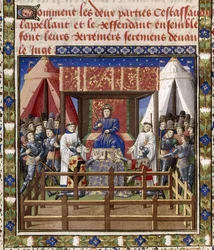 Comment les deux parties cestassavoir
lappellant et le deffendant ensemble
font leurs derreniers seremens devant
le juge